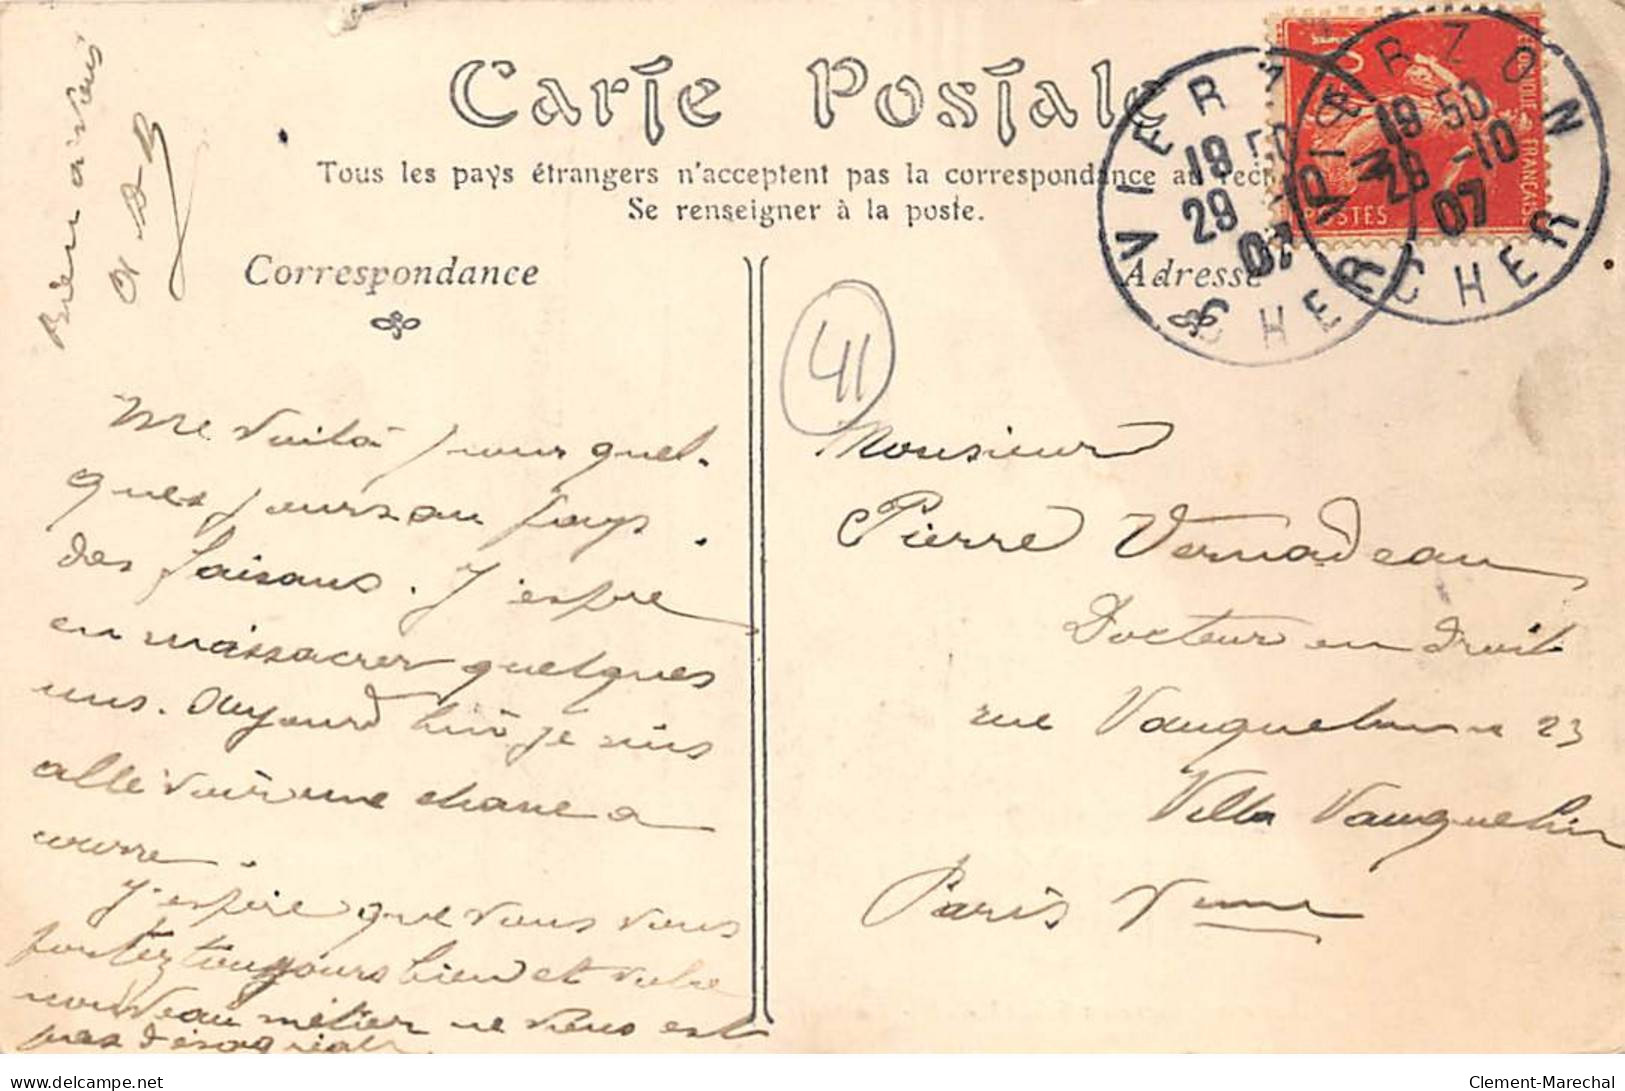 Carte Postale
Tous les pays étrangers n'acceptent pas la correspondance au rec
Se renseigner à la poste.
Correspondance
Adresse
VIERZON
19 50
29
07
CHER
VIERZON
19 50
26 -10
07
CHER
10
POSTES
FRANÇAISE
41
Bien a vous
Me voilà pour quel-
ques jours au pays
des faisans. J'espère
en massacrer quelques
uns. Aujourd'hui je suis
allé voir une chasse a
courre.
J'espère que vous vous
portez toujours bien et votre
nouveau métier ne vous est
pas désagréable
Monsieur
Pierre Vernadeau
Docteur en droit
rue Vauquelin 23
Villa Vauquelin
Paris Vème
delcampe.net
Clement-Marechal